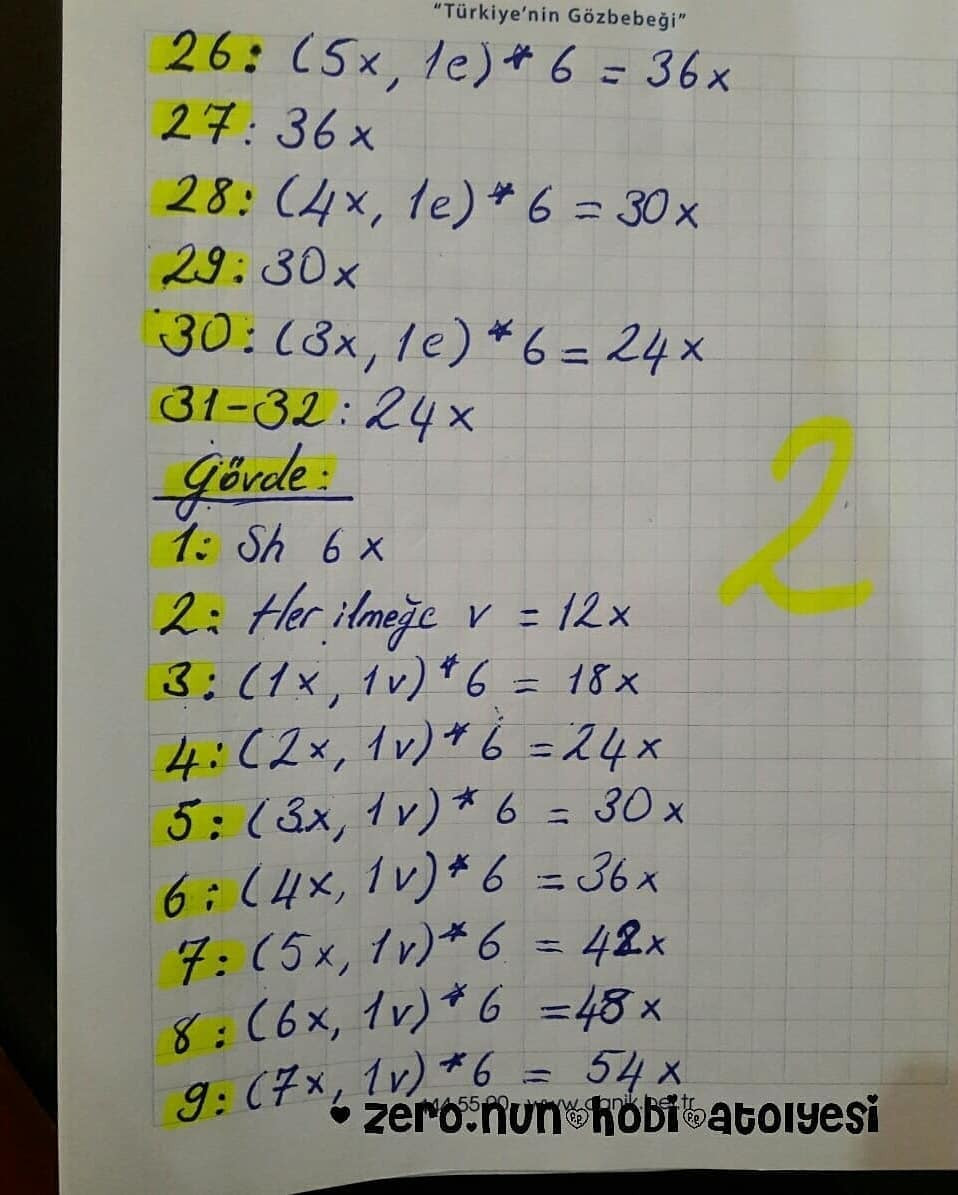 "Türkiye'nin Gözbebeği"
26: (5x, 1e)* 6 = 36x
27: 36x
28: (4x, 1e)* 6 = 30x
29: 30x
30: (3x, 1e)* 6 = 24x
31-32: 24x
Gövde:
1: Sh 6x
2: Her ilmeğe v = 12x
3: (1x, 1v)* 6 = 18x
4: (2x, 1v)* 6 = 24x
5: (3x, 1v)* 6 = 30x
6: (4x, 1v)* 6 = 36x
7: (5x, 1v)* 6 = 42x
8: (6x, 1v)* 6 = 48x
9: (7x, 1v)* 6 = 54x
2
zero.nun hobi atolyesi